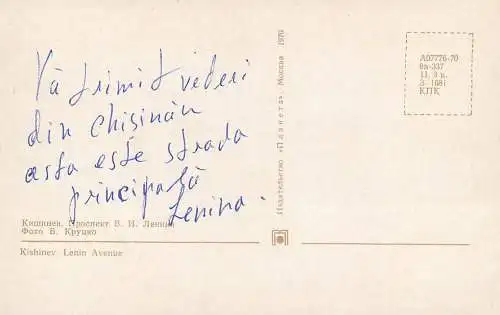 Vă trimit vederi
din Chisinău
asta este strada
principală
Lenina.
Кишинев. Проспект В. И. Ленина
Фото В. Круцко
Kishinev Lenin Avenue
Издательство «Планета». Москва 1970
А07776-70
8а-337
Ц. 3 к.
З. 1681
КПК